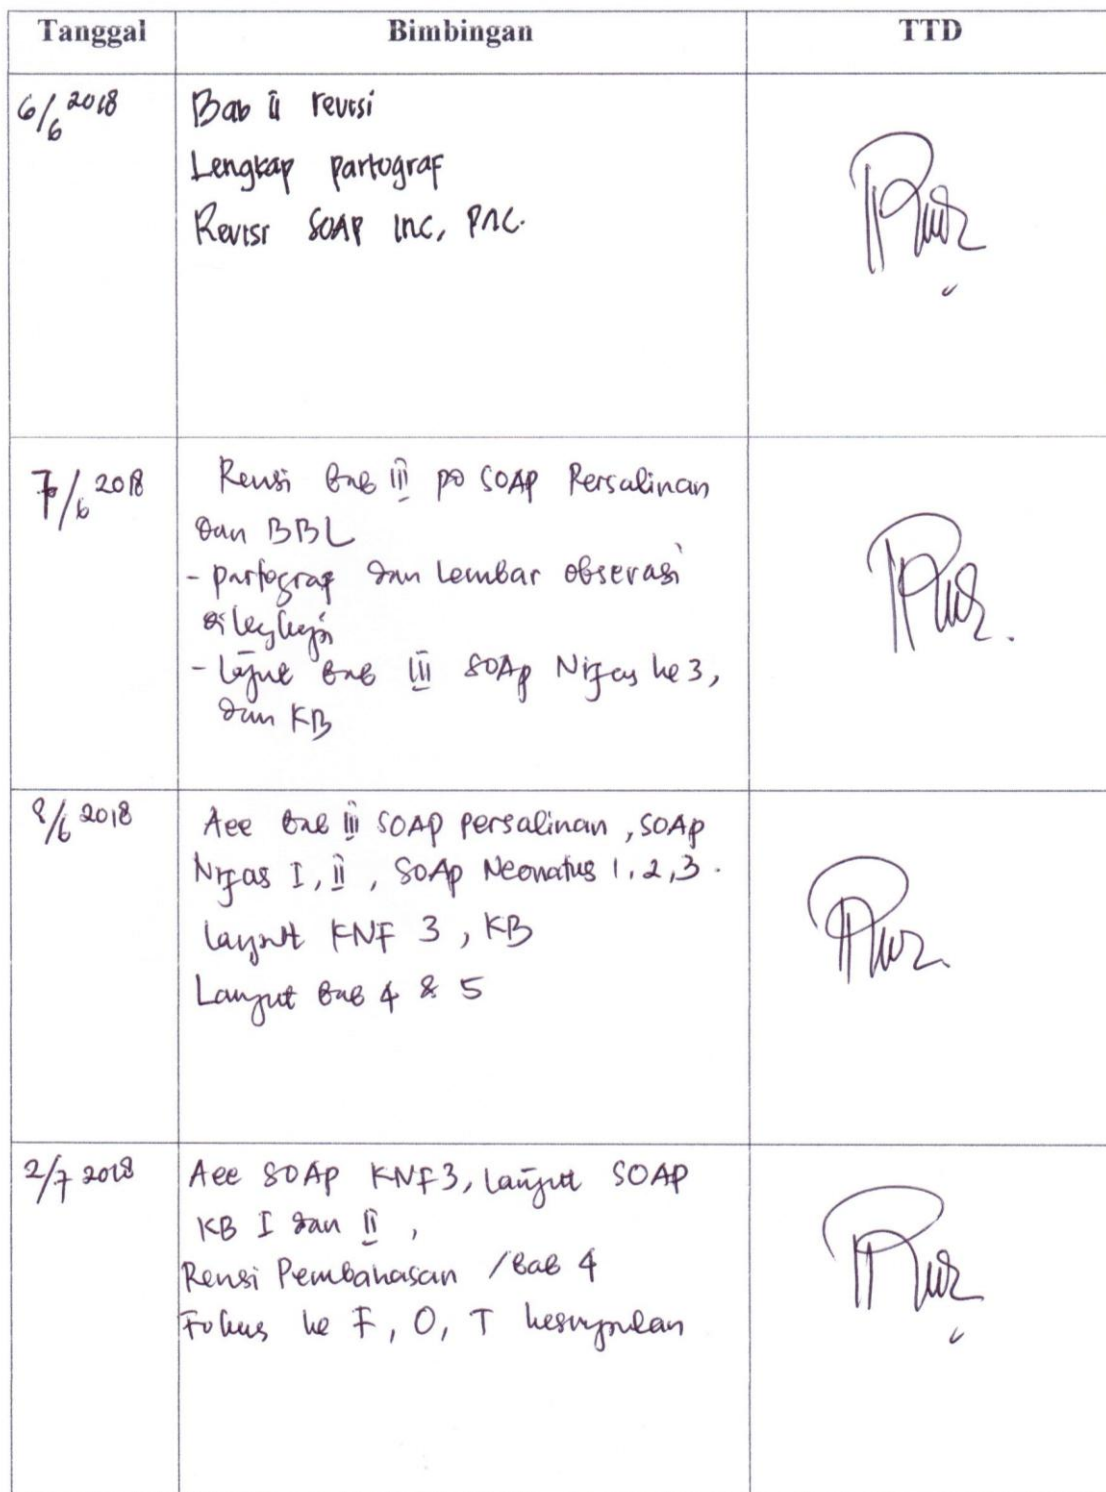 Tanggal Bimbingan TTD
6/6 2018 Bab II revisi
Lengkap partograf
Revisi SOAP INC, PNC.
7/6 2018 Revisi Bab III po SOAP Persalinan
dan BBL
- partograf dan Lembar obserasi
dilengkapi
- Lanjut Bab III SOAP Nifas ke 3,
dan KB
8/6 2018 Acc Bab III SOAP persalinan, SOAP
Nifas I, II, SOAP Neonatus 1, 2, 3.
Lanjut KNF 3, KB
Lanjut Bab 4 & 5
2/7 2018 Acc SOAP KNF3, Lanjut SOAP
KB I dan II,
Revisi Pembahasan / Bab 4
Fokus ke F, O, T kesimpulan